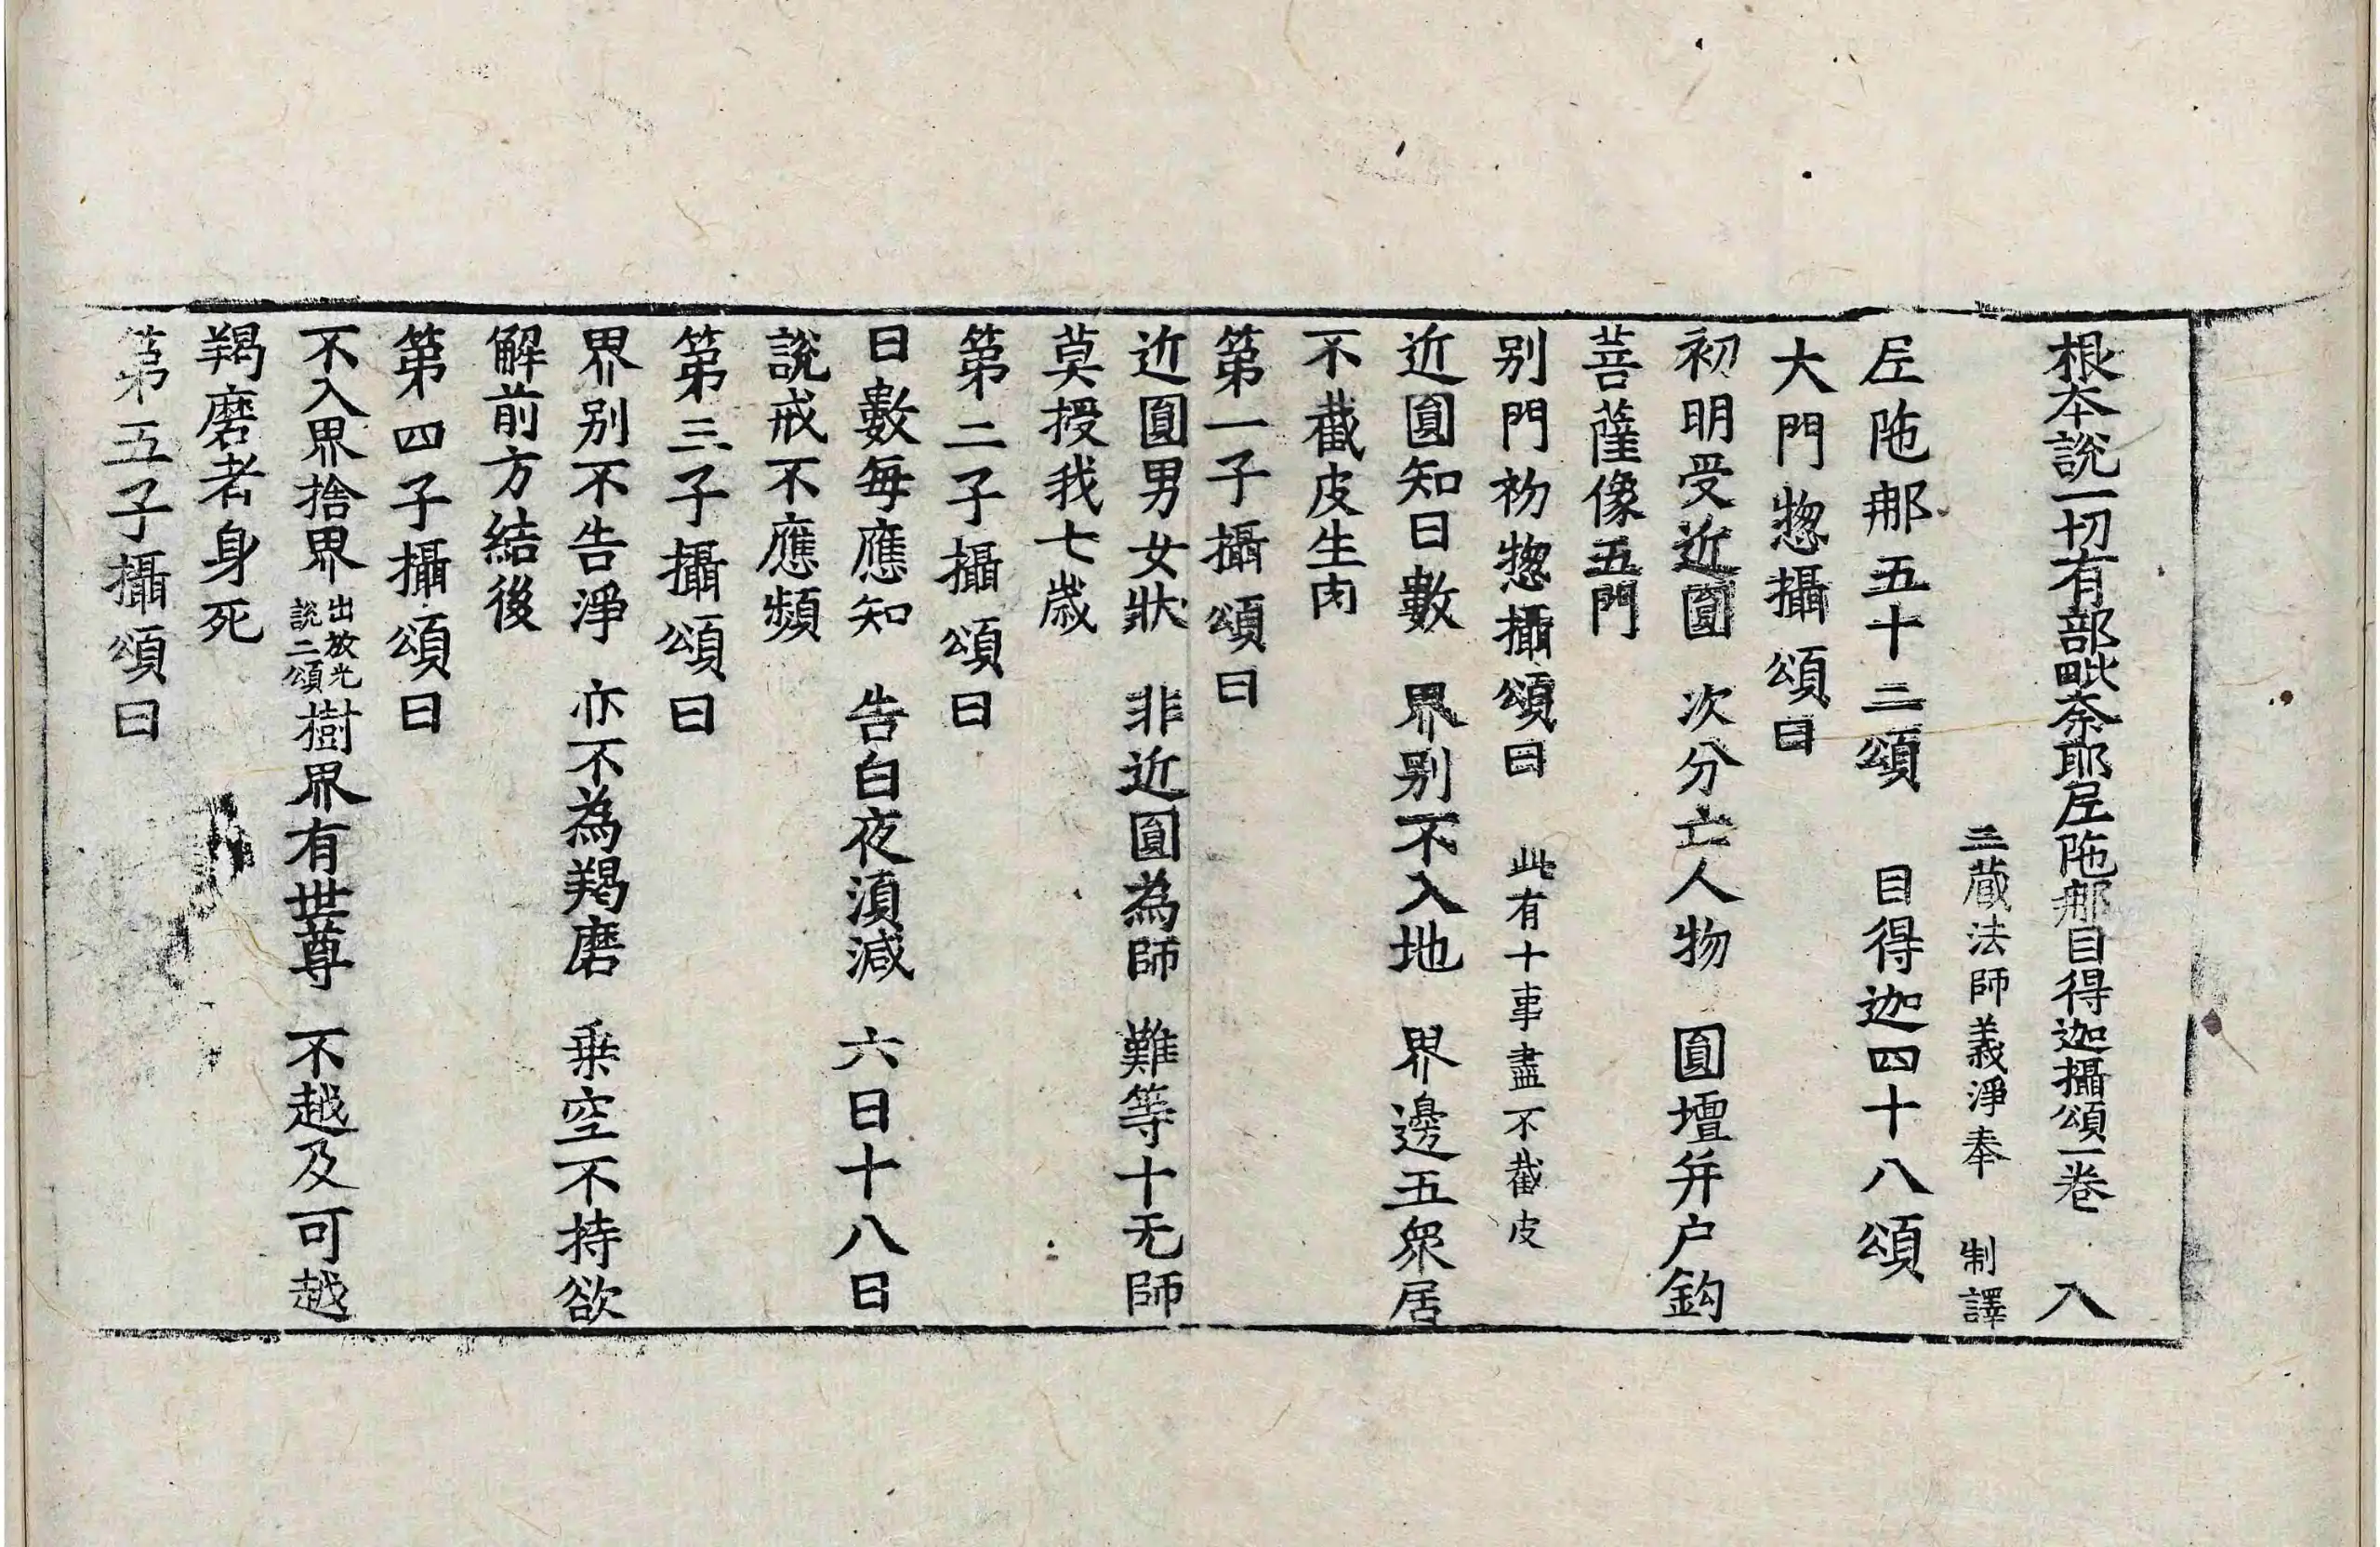 根本說一切有部毗奈耶𡰱陁那目得迦攝頌一卷　入
三藏法師義淨奉　制譯
𡰱陁那五十二頌　目得迦四十八頌
大門揔攝頌曰
初明受近圓　次分亡人物　圓壇并户鈎
菩薩像五門
别門初揔攝頌曰　此有十事盡不截皮
近圓知日數　界别不入地　界邊五衆居
不截皮生肉
第一子攝頌曰
近圓男女狀　非近圓為師　難等十无師
莫授我七歲
第二子攝頌曰
日數每應知　告白夜湏減　六日十八日
說戒不應頻
第三子攝頌曰
界别不告淨　亦不為羯磨　乗空不持欲
解前方結後
第四子攝頌曰
不入界捨界出放光說二頌樹界有世尊　不越及可越
羯磨者身死
第五子攝頌曰